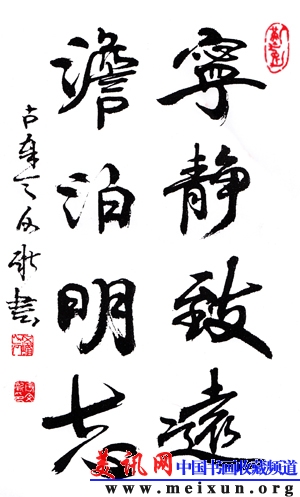 寧靜致遠
澹泊明志
美讯网 中国书画收藏频道
www.meixun.org